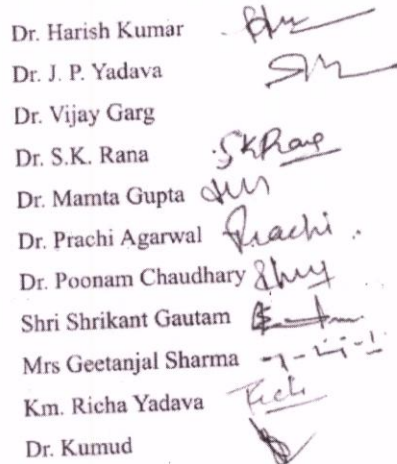 Dr. Harish Kumar
Dr. J. P. Yadava
Dr. Vijay Garg
Dr. S.K. Rana SKRana
Dr. Mamta Gupta
Dr. Prachi Agarwal Prachi
Dr. Poonam Chaudhary
Shri Shrikant Gautam
Mrs Geetanjal Sharma
Km. Richa Yadava
Dr. Kumud